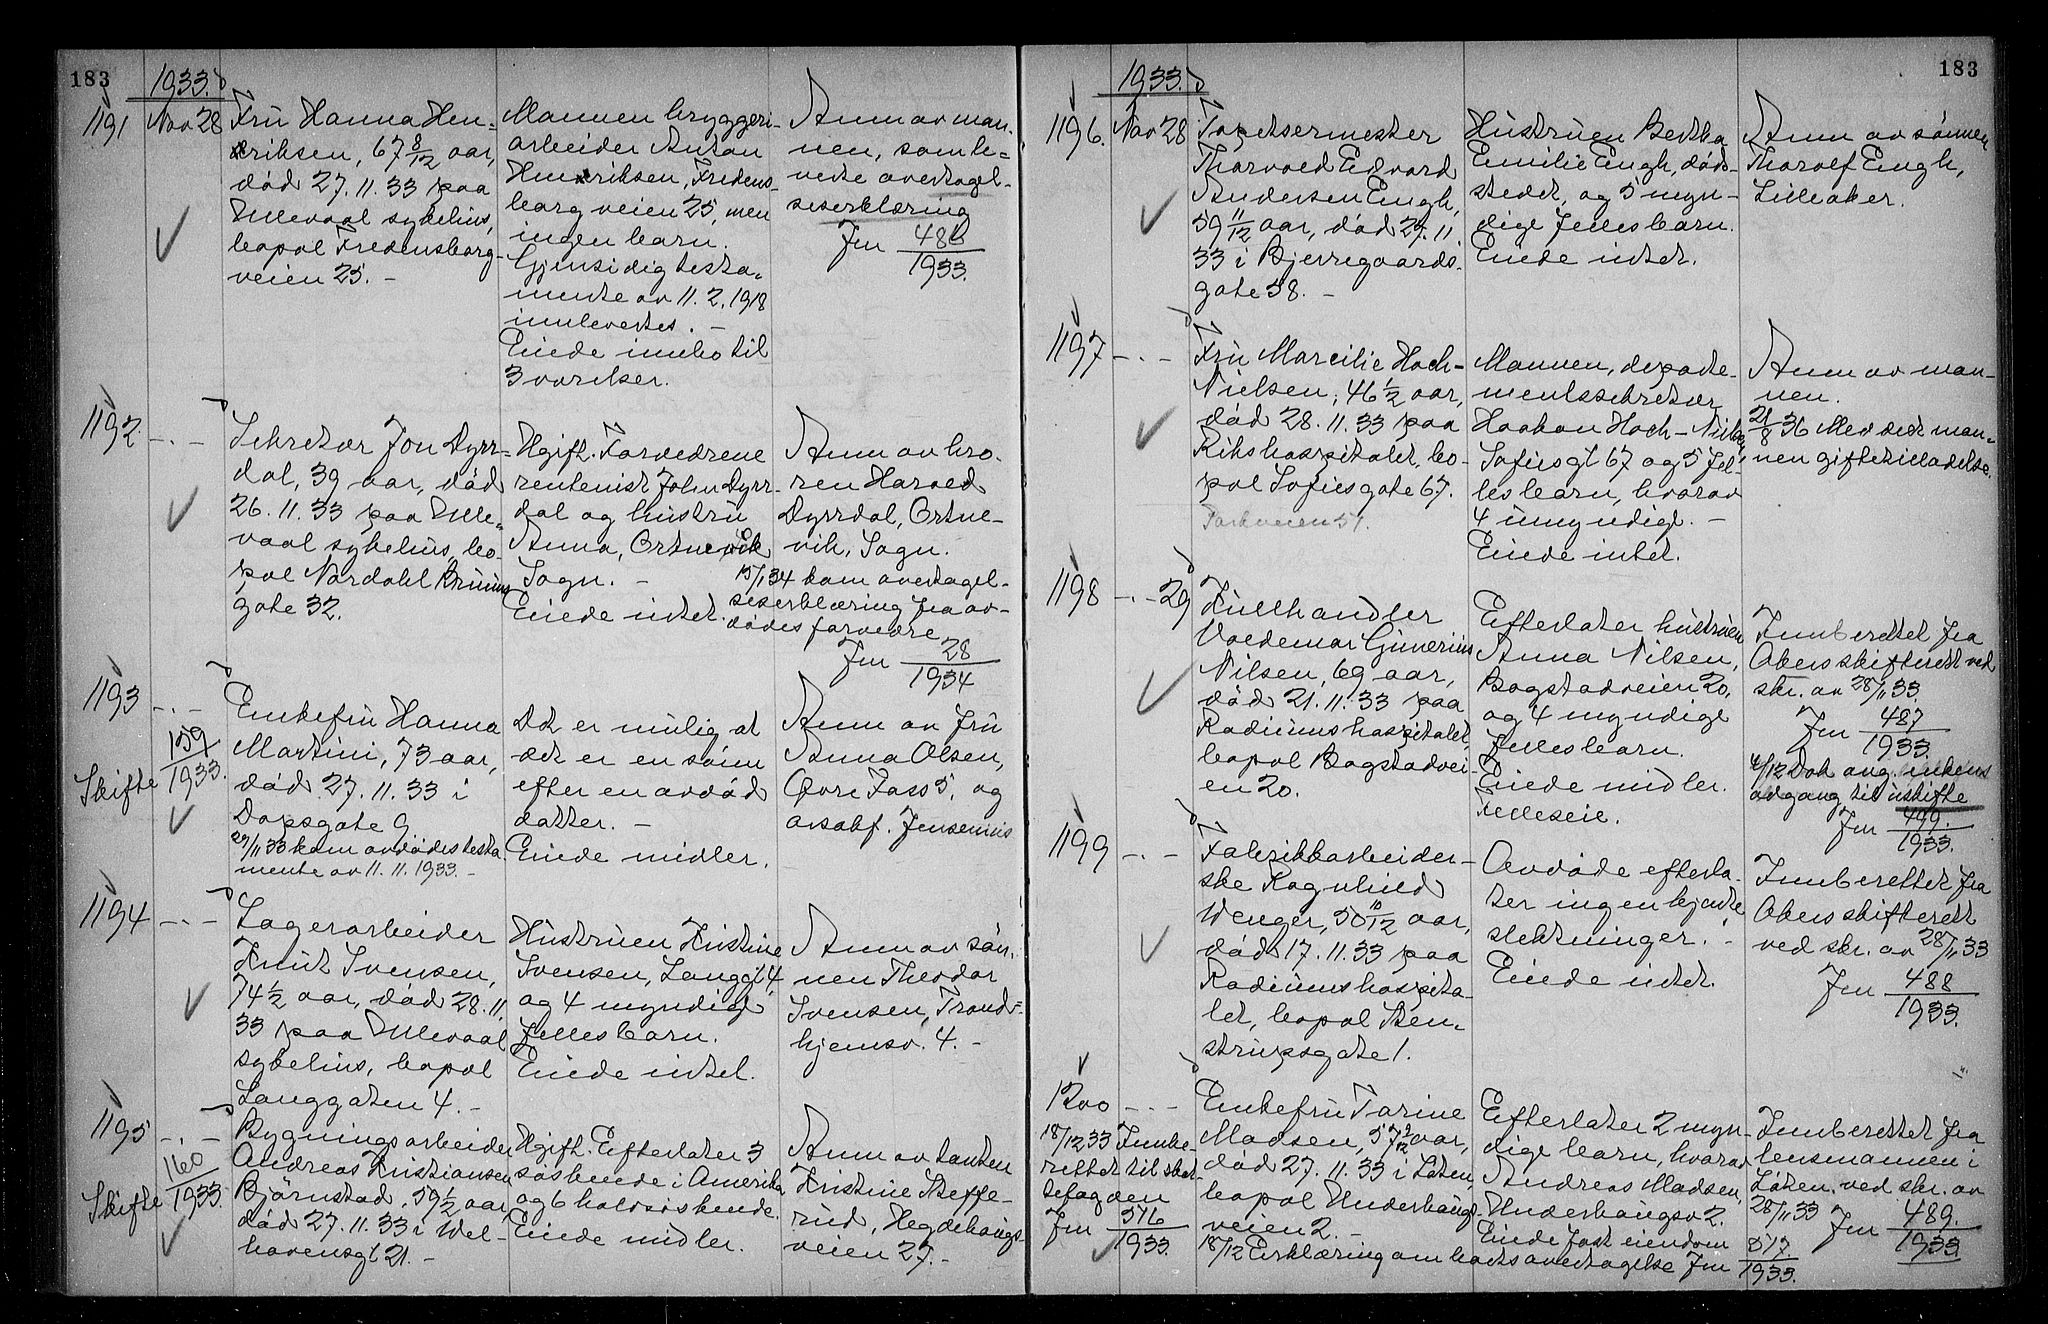 183
1933.
1191
Nov 28
Fru Hanna Hen=
driksen, 67 8/12 aar,
död 27.11.33 paa
Ullevaal sykehus,
bopæl Fredensborg-
veien 25. -
Mannen bryggeri-
arbeider Anton
Hendriksen, Fredens-
borgveien 25, men
ingen barn.
Gjensidig testa-
mente av 11.2.1918
innlevertes. -
Eiede innbo til
3 værelser.
Anm av man-
nen, som le=
verte overtagel-
seserklæring
Jnr 486/1933.
1192
- . -
Sekretær Jon Dyrr=
dal, 39 aar, död
26.11.33 paa Ulle-
vaal sykehus, bo-
pæl Nordahl Bruuns
gate 32.
Ugift. Forældrene
rentenist John Dyrr-
dal og hustru
Anna, Ortnevik
Sogn. -
Eiede intet.
Anm av bro-
ren Harald
Dyrrdal, Ortne-
vik, Sogn.
15/1 34 kom overtagel-
seserklæring fra av-
dödes forældre
Jnr 28/1934
1193
- . -
Skifte 159/1933.
Enkefru Hanna
Martini, 73 aar,
död 27.11.33 i
Dopsgate 9
29/11 33 kom avdödes testa
mente av 11.11.1933. -
Det er mulig at
det er en sönn
efter en avdöd
datter. -
Eiede midler.
Anm av fru
Anna Olsen,
Övre Foss 5, og
o.r.sakf. Jensenius
1194
- . -
Lagerarbeider
Knut Svensen,
74 1/2 aar, död 28.11.
33 paa Ullevaal
sykehus, bopæl
Langgaten 4. -
Hustruen Kristine
Svensen, Langgt 4,
og 4 myndige
fellesbarn.
Eiede intet.
Anm av sön-
nen Theodor
Svensen, Trond=
hjemsv. 4. -
1195
- . -
Skifte 160/1933.
Bygningsarbeider
Andreas Kristiansen
Björnstad, 59 1/2 aar,
död 27.11.33 i Wel-
havensgt 21. -
Ugift. Efterlater 3
söskende i Amerika
og 6 halvsöskende.
Eiede midler.
Anm av tanten
Kristine Steffe-
rud, Hegdehaugs-
veien 27. -
183
1933.
1196.
Nov 28
Tapetsermester
Thorvald Edvard
Andersen Engh,
59 11/12 aar, död 27.11
33 i Bjerregaards-
gate 58. -
Hustruen Bertha
Emilie Engh, döds-
stedet, og 5 myn-
dige fellesbarn.
Eiede intet.
Anm av sönnen
Thorolf Engh,
Lilleaker.
1197
- . -
Fru Marcilie Hoch-
Nielsen, 46 1/2 aar,
död 28.11.33 paa
Rikshospitalet, bo-
pæl Sofiesgate 67.
Parkveien 51.
Mannen, departe-
mentssekretær
Haakon Hoch-Nielsen,
Sofiesgt 67 og 5 fel-
lesbarn, hvorav
4 umyndige. -
Eiede intet.
Anm av man-
nen.
21/8 36 Meddelt man-
nen giftetilladelse.
1198
- . - 29
Kullhandler
Valdemar Gunerius
Nilsen, 69 aar,
död 21.11.33 paa
Radiumshospitalet,
bopæl Bogstadvei-
en 20.
Efterlater hustruen
Anna Nilsen,
Bogstadveien 20,
og 4 myndige
fellesbarn.
Eiede midler.
Felleseie.
Innberettet fra
Akers skifterett ved
skr. av 28/11 33.
Jnr 487/1933.
4/12 Dok ang. enkens
adgang til uskifte
Jnr 499./1933.
1199
- . -
Fabrikkarbeider-
ske Ragnhild
Wenger, 50 10/12 aar,
död 17.11.33 paa
Radiumshospita-
let, bopæl Sten-
strupsgate 1.
Avdöde efterla-
ter ingen kjendte
slektninger. -
Eiede intet.
Innberettet fra
Akers skifterett
ved skr. av 28/11 33
Jnr 488/1933.
1200
- . -
18/12 33 Innbe-
rettet til skat-
tefogden
Jnr 516/1933.
Enkefru Torine
Madsen, 57 2/12 aar,
död 27.11.33 i Löten,
bopæl Underhaugs-
veien 2. -
18/12 Erklæring om boets overtagelse Jnr 517/1933.
Efterlater 2 myn-
dige barn, hvorav
Andreas Madsen,
Underhaugsv 2.
Eiede fast eiendom
Innberettet fra
lensmannen i
Löten ved skr. av
28/11 33 Jnr 489./1933